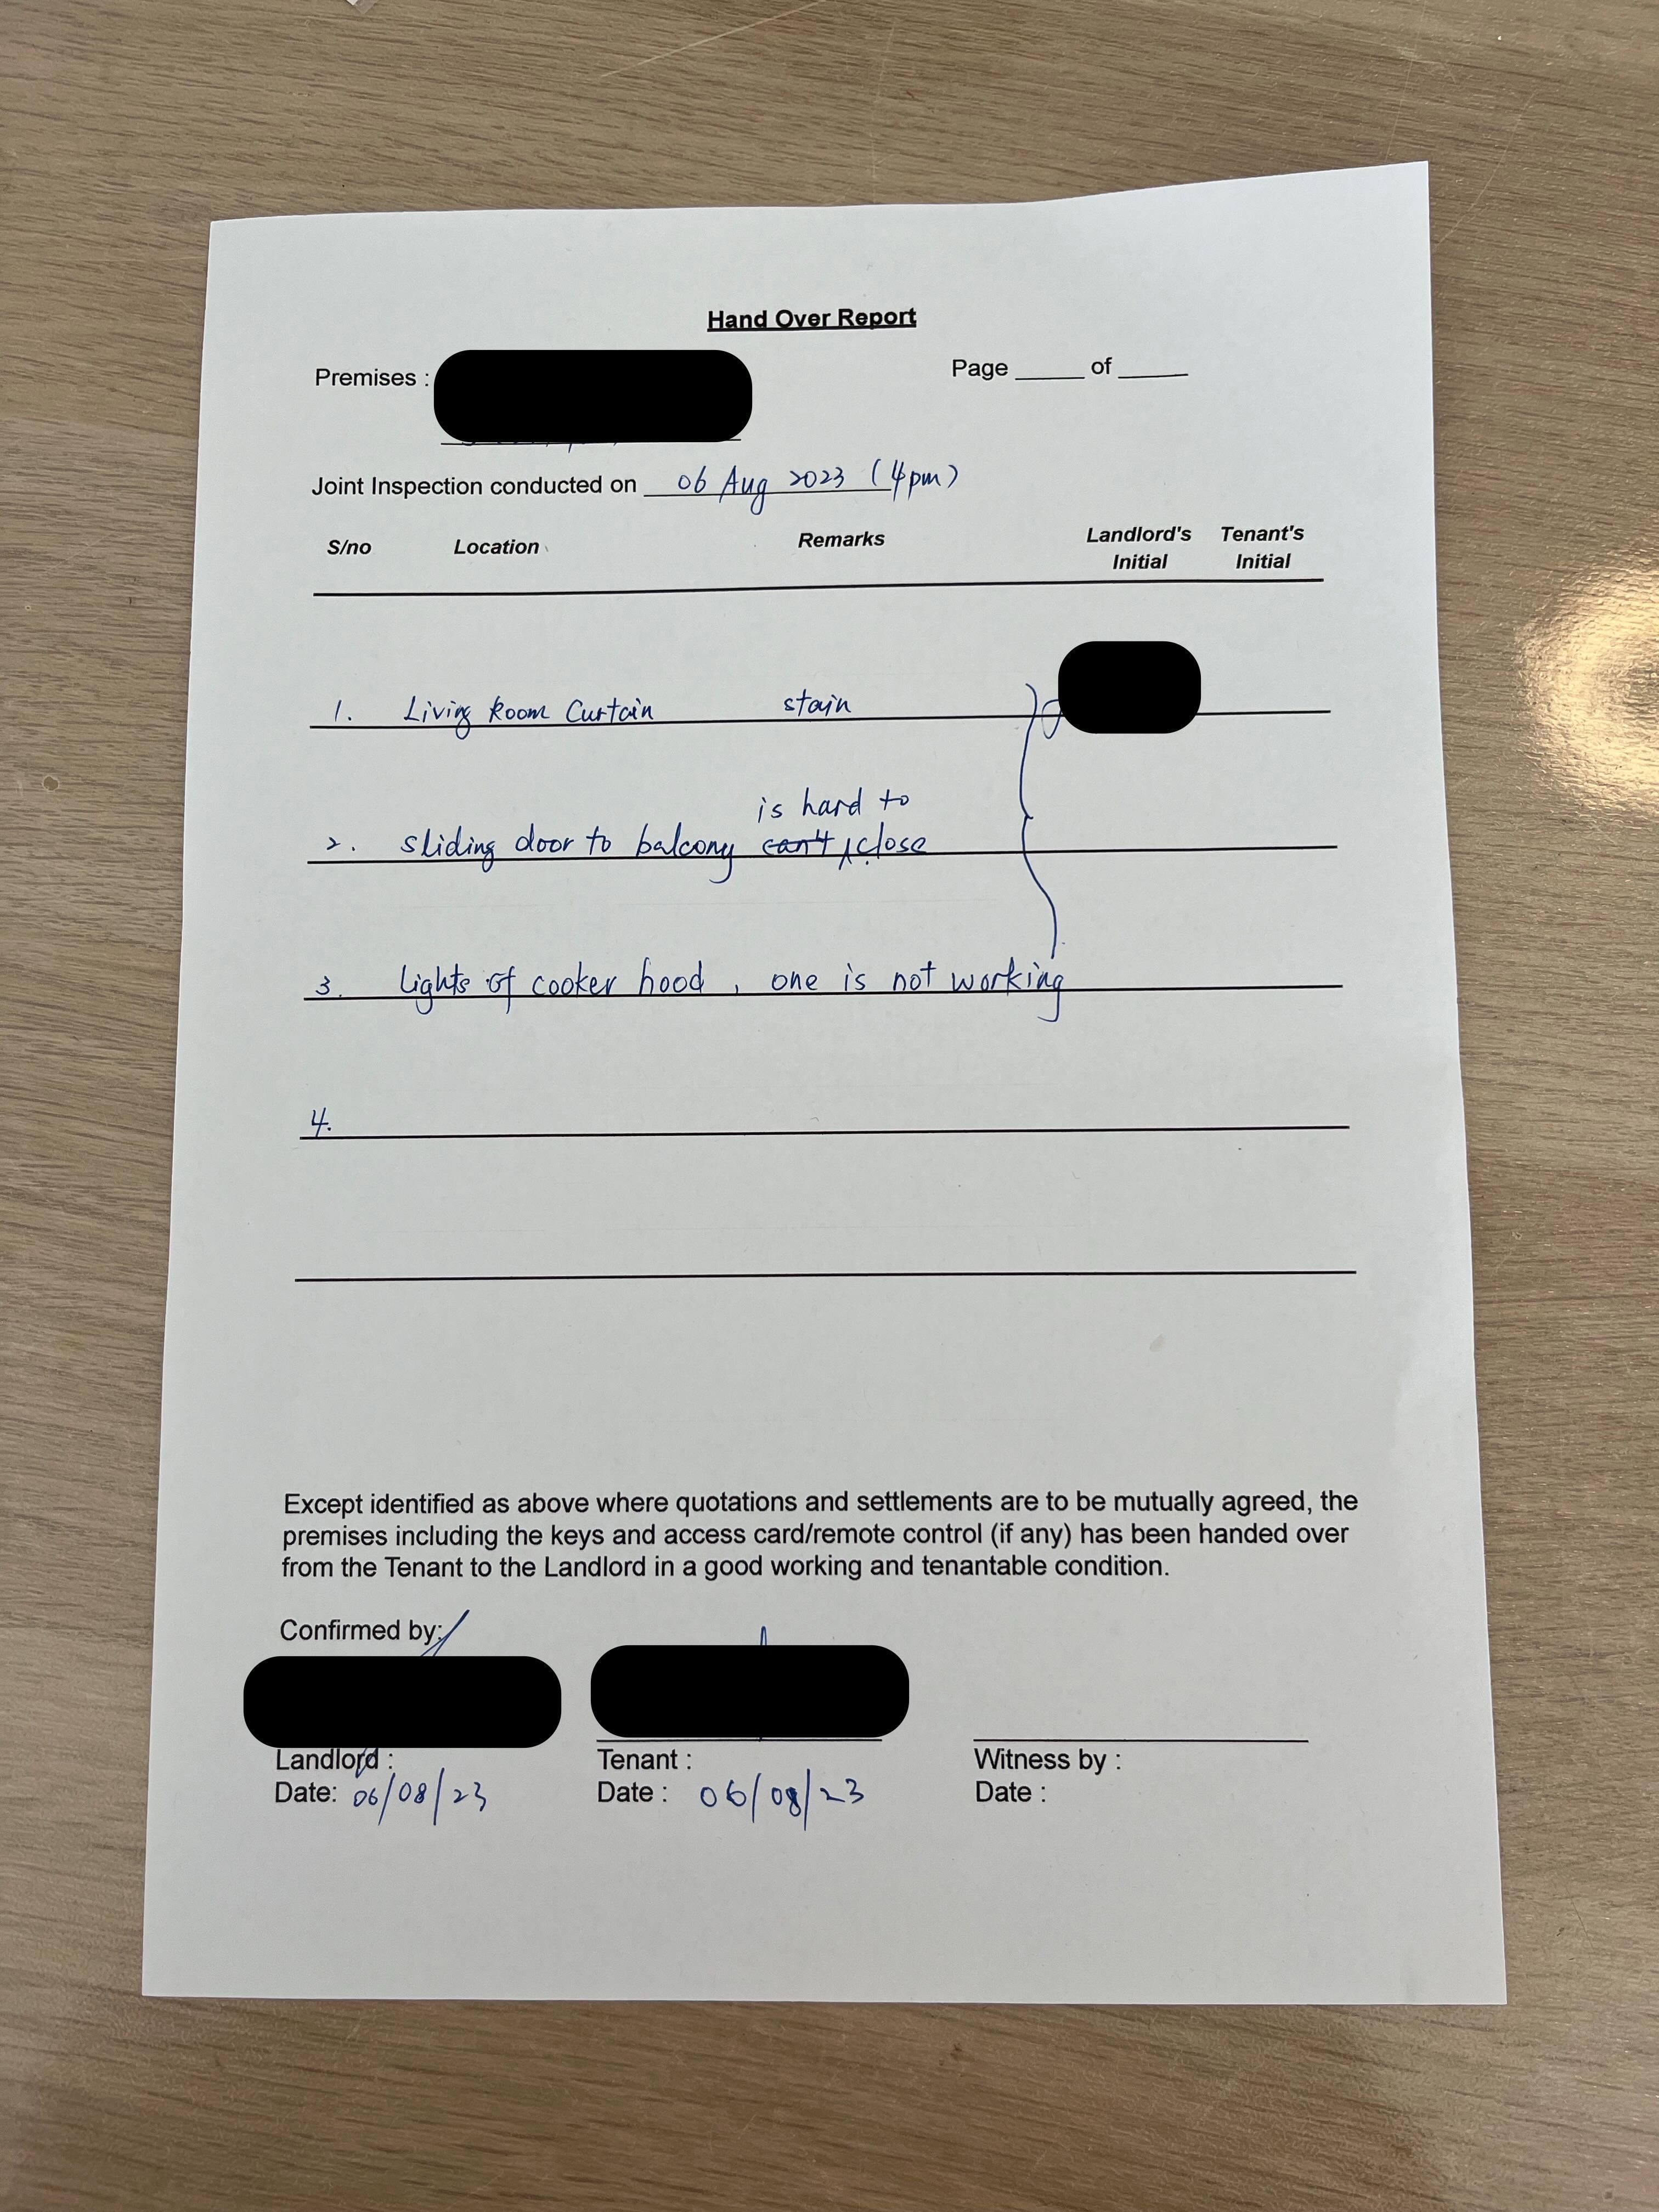 Hand Over Report
Premises :
Page _____ of _____
Joint Inspection conducted on 06 Aug 2023 (4pm)
S/no Location Remarks Landlord's Initial Tenant's Initial
1. Living Room Curtain stain
is hard to
2. sliding door to balcony can't close
3. Lights of cooker hood, one is not working
4.
Except identified as above where quotations and settlements are to be mutually agreed, the
premises including the keys and access card/remote control (if any) has been handed over
from the Tenant to the Landlord in a good working and tenantable condition.
Confirmed by:
Landlord : Tenant : Witness by :
Date: 06/08/23 Date : 06/08/23 Date :